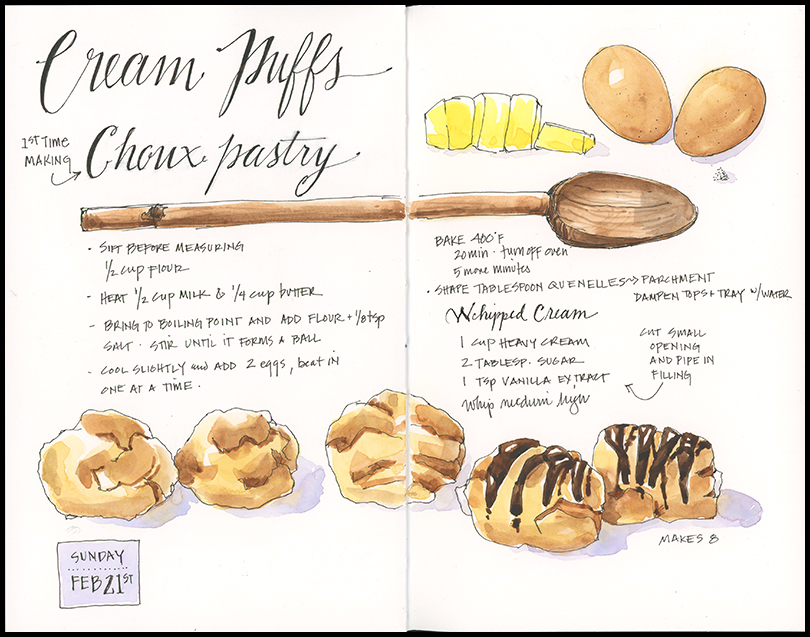 Cream Puffs
1ST TIME
MAKING
Choux pastry
· SIFT BEFORE MEASURING
1/2 CUP FLOUR
- HEAT 1/2 CUP MILK & 1/4 CUP BUTTER
- BRING TO BOILING POINT AND ADD FLOUR + 1/8 tsp
SALT. STIR UNTIL IT FORMS A BALL
- COOL SLIGHTLY and ADD 2 eggs, beat in
ONE AT A TIME.
SUNDAY
FEB 21ST
BAKE 400°F
20 min · turn off oven
5 more minutes
· SHAPE TABLESPOON QUENELLES → PARCHMENT
DAMPEN TOPS + TRAY W/WATER
Whipped Cream
1 CUP HEAVY CREAM
2 TABLESP. SUGAR
1 TSP VANILLA EXTRACT
Whip medium high
CUT SMALL
OPENING
AND PIPE IN
FILLING
MAKES 8